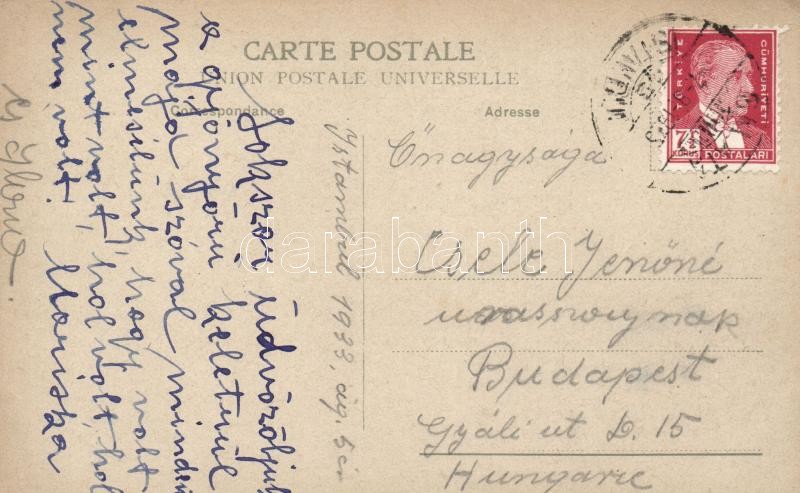 CARTE POSTALE
UNION POSTALE UNIVERSELLE
Correspondance
Adresse
TÜRKİYE CÜMHURİYETİ
7½
KURUŞ POSTALARI
Sokszor üdvözöljük
a gyönyörű keletről
maga szóval minden
elmesélünk, hogy volt
mint volt, hol volt, hol
nem volt. Mariska
Istambul 1933. aug. 5 én
Őnagysága
Csele Jenőné
urasszonynak
Budapest
Gyáli út D. 15
Hungarie
darabanth